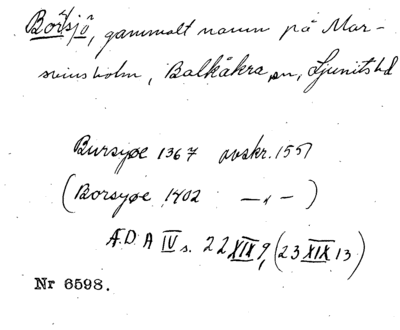 Borsjö, gammalt namn på Mar-
svinsholm, Balkåkra sn, Ljunits hd
Bursyøe 1367 avskr. 1551
(Borsyøe 1402 —"—)
ÆDA IV s. 22 XIX 9, (23 XIX 13)
Nr 6598.